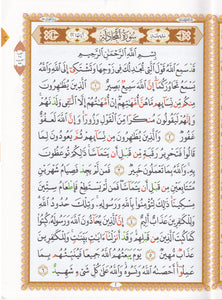 سُورَةُ المُجَادلَةِ
بِسْمِ ٱللَّهِ ٱلرَّحْمَٰنِ ٱلرَّحِيمِ
قَدْ سَمِعَ ٱللَّهُ قَوْلَ ٱلَّتِي تُجَٰدِلُكَ فِي زَوْجِهَا وَتَشْتَكِيٓ إِلَى ٱللَّهِ وَٱللَّهُ
يَسْمَعُ تَحَاوُرَكُمَآ إِنَّ ٱللَّهَ سَمِيعٌۢ بَصِيرٌ ١ ٱلَّذِينَ يُظَٰهِرُونَ
مِنكُم مِّن نِّسَآئِهِم مَّا هُنَّ أُمَّهَٰتِهِمْ إِنْ أُمَّهَٰتُهُمْ إِلَّا ٱلَّٰٓـِٔي
وَلَدْنَهُمْ وَإِنَّهُمْ لَيَقُولُونَ مُنكَرًا مِّنَ ٱلْقَوْلِ وَزُورًا وَإِنَّ ٱللَّهَ
لَعَفُوٌّ غَفُورٌ ٢ وَٱلَّذِينَ يُظَٰهِرُونَ مِن نِّسَآئِهِمْ ثُمَّ يَعُودُونَ لِمَا
قَالُوا۟ فَتَحْرِيرُ رَقَبَةٍ مِّن قَبْلِ أَن يَتَمَآسَّا ذَٰلِكُمْ تُوعَظُونَ
بِهِۦ وَٱللَّهُ بِمَا تَعْمَلُونَ خَبِيرٌ ٣ فَمَن لَّمْ يَجِدْ فَصِيَامُ شَهْرَيْنِ
مُتَتَابِعَيْنِ مِن قَبْلِ أَن يَتَمَآسَّا فَمَن لَّمْ يَسْتَطِعْ فَإِطْعَامُ سِتِّينَ
مِسْكِينًا ذَٰلِكَ لِتُؤْمِنُوا۟ بِٱللَّهِ وَرَسُولِهِۦ وَتِلْكَ حُدُودُ ٱللَّهِ
وَلِلْكَٰفِرِينَ عَذَابٌ أَلِيمٌ ٤ إِنَّ ٱلَّذِينَ يُحَآدُّونَ ٱللَّهَ وَرَسُولَهُۥ كُبِتُوا۟
كَمَا كُبِتَ ٱلَّذِينَ مِن قَبْلِهِمْ وَقَدْ أَنزَلْنَآ ءَايَٰتٍۭ بَيِّنَٰتٍ وَلِلْكَٰفِرِينَ
عَذَابٌ مُّهِينٌ ٥ يَوْمَ يَبْعَثُهُمُ ٱللَّهُ جَمِيعًا فَيُنَبِّئُهُم بِمَا
عَمِلُوٓا۟ أَحْصَىٰهُ ٱللَّهُ وَنَسُوهُ وَٱللَّهُ عَلَىٰ كُلِّ شَيْءٍ شَهِيدٌ ٦